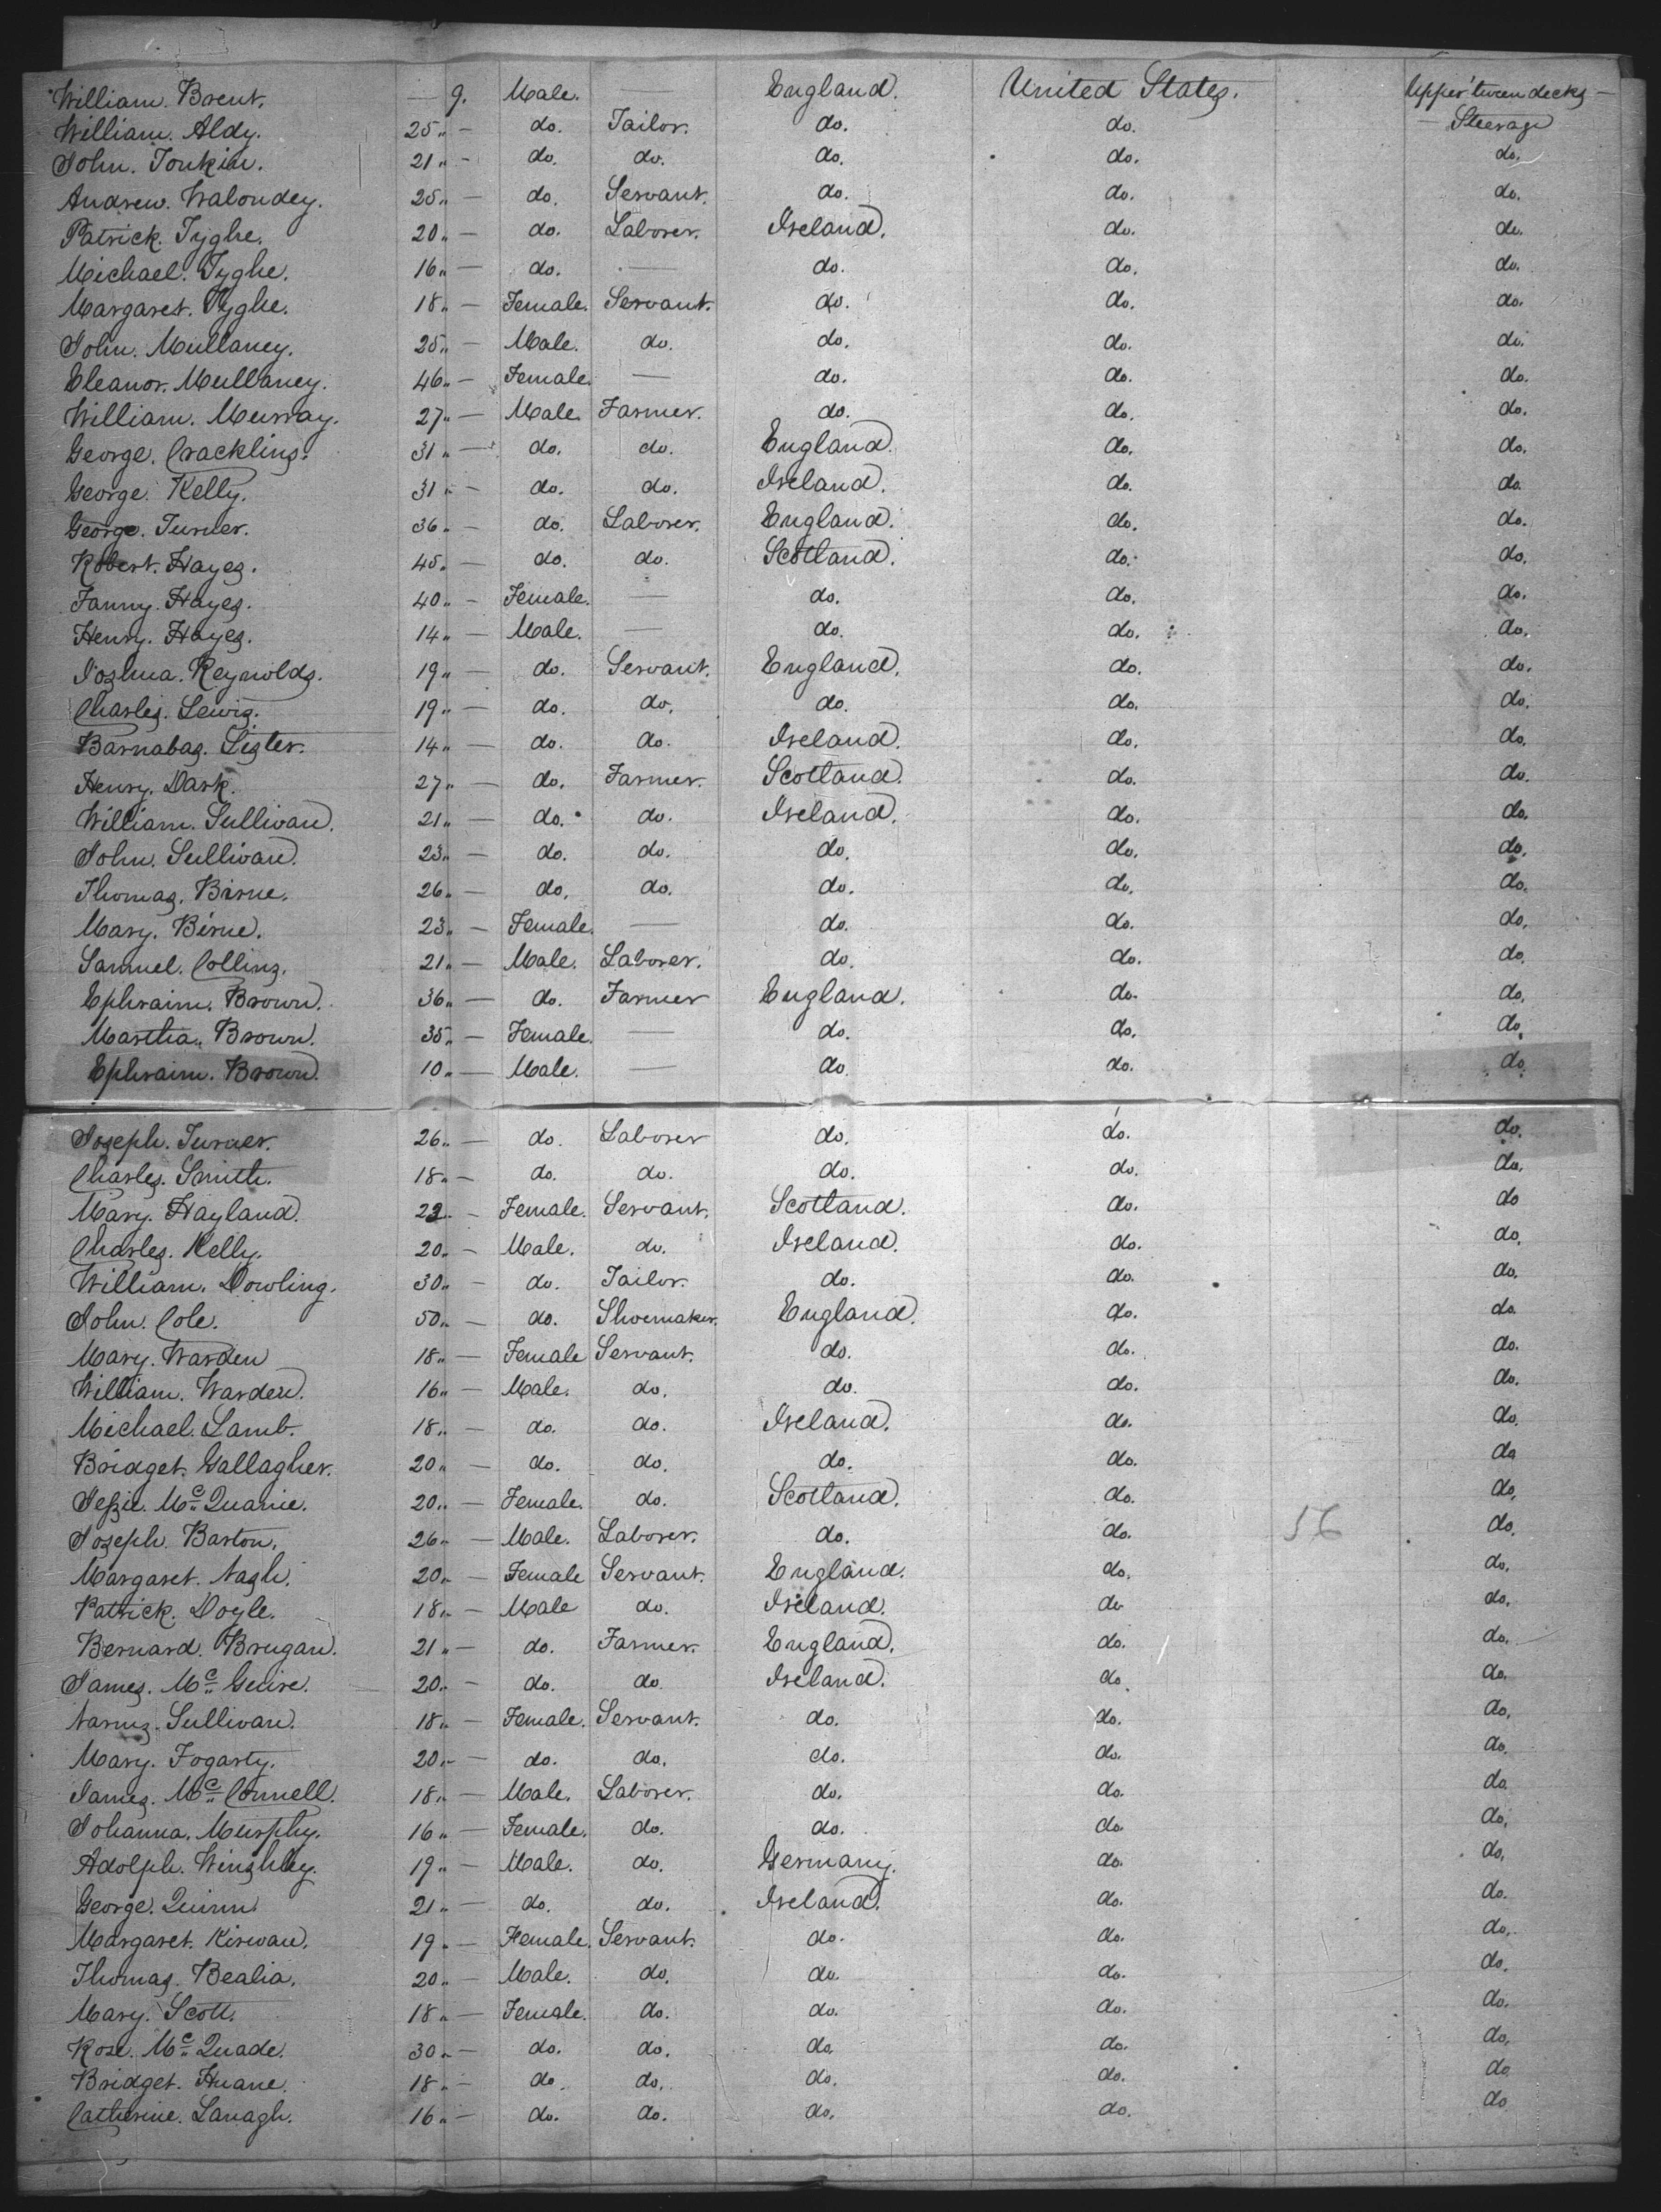 William. Brent. — 9. Male. — England. United States. Upper 'tween decks —
William. Aldy. 25 „ — do. Tailor. do. do. — Steerage
John. Tonkin. 21 „ — do. do. do. do. do.
Andrew. Waloudey. 25 „ — do. Servant. do. do. do.
Patrick. Tyghe. 20 „ — do. Laborer. Ireland. do. do.
Michael. Tyghe. 16 „ — do. — do. do. do.
Margaret. Tyghe. 18 „ — Female. Servant. do. do. do.
John. Mullaney. 25 „ — Male. do. do. do. do.
Eleanor. Mullaney. 46 „ — Female. — do. do. do.
William. Murray. 27 „ — Male. Farmer. do. do. do.
George. Crackling. 31 „ — do. do. England. do. do.
George. Kelly. 31 „ — do. do. Ireland. do. do.
George. Turner. 36 „ — do. Laborer. England. do. do.
Robert. Hayes. 45 „ — do. do. Scotland. do. do.
Fanny. Hayes. 40 „ — Female. — do. do. do.
Henry. Hayes. 14 „ — Male. — do. do. do.
Joshua. Reynolds. 19 „ — do. Servant. England. do. do.
Charles. Lewis. 19 „ — do. do. do. do. do.
Barnabas. Lister. 14 „ — do. do. Ireland. do. do.
Henry. Dark. 27 „ — do. Farmer. Scotland. do. do.
William. Sullivan. 21 „ — do. do. Ireland. do. do.
John. Sullivan. 23 „ — do. do. do. do. do.
Thomas. Birne. 26 „ — do. do. do. do. do.
Mary. Birne. 23 „ — Female. — do. do. do.
Samuel. Collins. 21 „ — Male. Laborer. do. do. do.
Ephraim. Brown. 36 „ — do. Farmer England. do. do.
Martha. Brown. 35 „ — Female. — do. do. do.
Ephraim. Brown. 10 „ — Male. — do. do. do.
Joseph. Turner. 26 „ — do. Laborer do. do. do.
Charles. Smith. 18 „ — do. do. do. do. do.
Mary. Hayland. 22 „ — Female. Servant. Scotland. do. do
Charles. Kelly. 20 „ — Male. do. Ireland. do. do.
William. Dowling. 30 „ — do. Tailor. do. do. do.
John. Cole. 50 „ — do. Shoemaker. England. do. do.
Mary. Warden 18 „ — Female Servant. do. do. do.
William. Warden. 16 „ — Male. do. do. do. do.
Michael. Lamb. 18 „ — do. do. Ireland. do. do.
Bridget. Gallagher. 20 „ — do. do. do. do. do
Jessie. Mc Quanie. 20 „ — Female. do. Scotland. do. do.
Joseph. Barton. 26 „ — Male. Laborer. do. do. 56 do.
Margaret. Nash. 20 „ — Female Servant. England. do. do.
Patrick. Doyle. 18 „ — Male do. Ireland. do do.
Bernard. Brugan. 21 „ — do. Farmer. England. do. do.
James. Mc Guire. 20 „ — do. do Ireland. do. do.
Sullivan. 18 „ — Female. Servant. do. do. do.
Mary. Fogarty. 20 „ — do. do. do. do. do.
James. Mc Connell. 18 „ — Male. Laborer. do. do. do.
Johanna. Murphy. 16 „ — Female. do. do. do. do.
Adolph. Winshley. 19 „ — Male. do. Germany. do. do.
George. Quinn. 21 „ — do. do. Ireland. do. do.
Margaret. Kirwan. 19 „ — Female. Servant. do. do. do.
Thomas. Bealia. 20 „ — Male. do. do. do. do.
Mary. Scott. 18 „ — Female. do. do. do. do.
Rose. Mc Quade. 30 „ — do. do. do. do. do.
Bridget. Huane. 18 „ — do. do. do. do. do.
Catherine. Lanagh. 16 „ — do. do. do. do. do